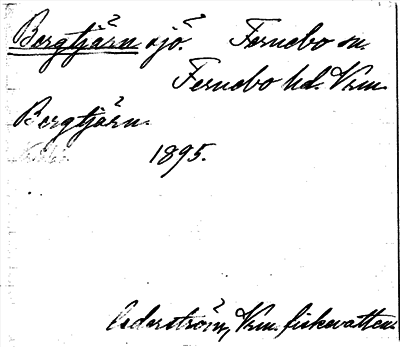 Bergtjärn sjö. Fernebo sn.
Fernebo hd. Vrm.
Bergtjärn.
1895.
Cederström, Vrm. fiskevatten.